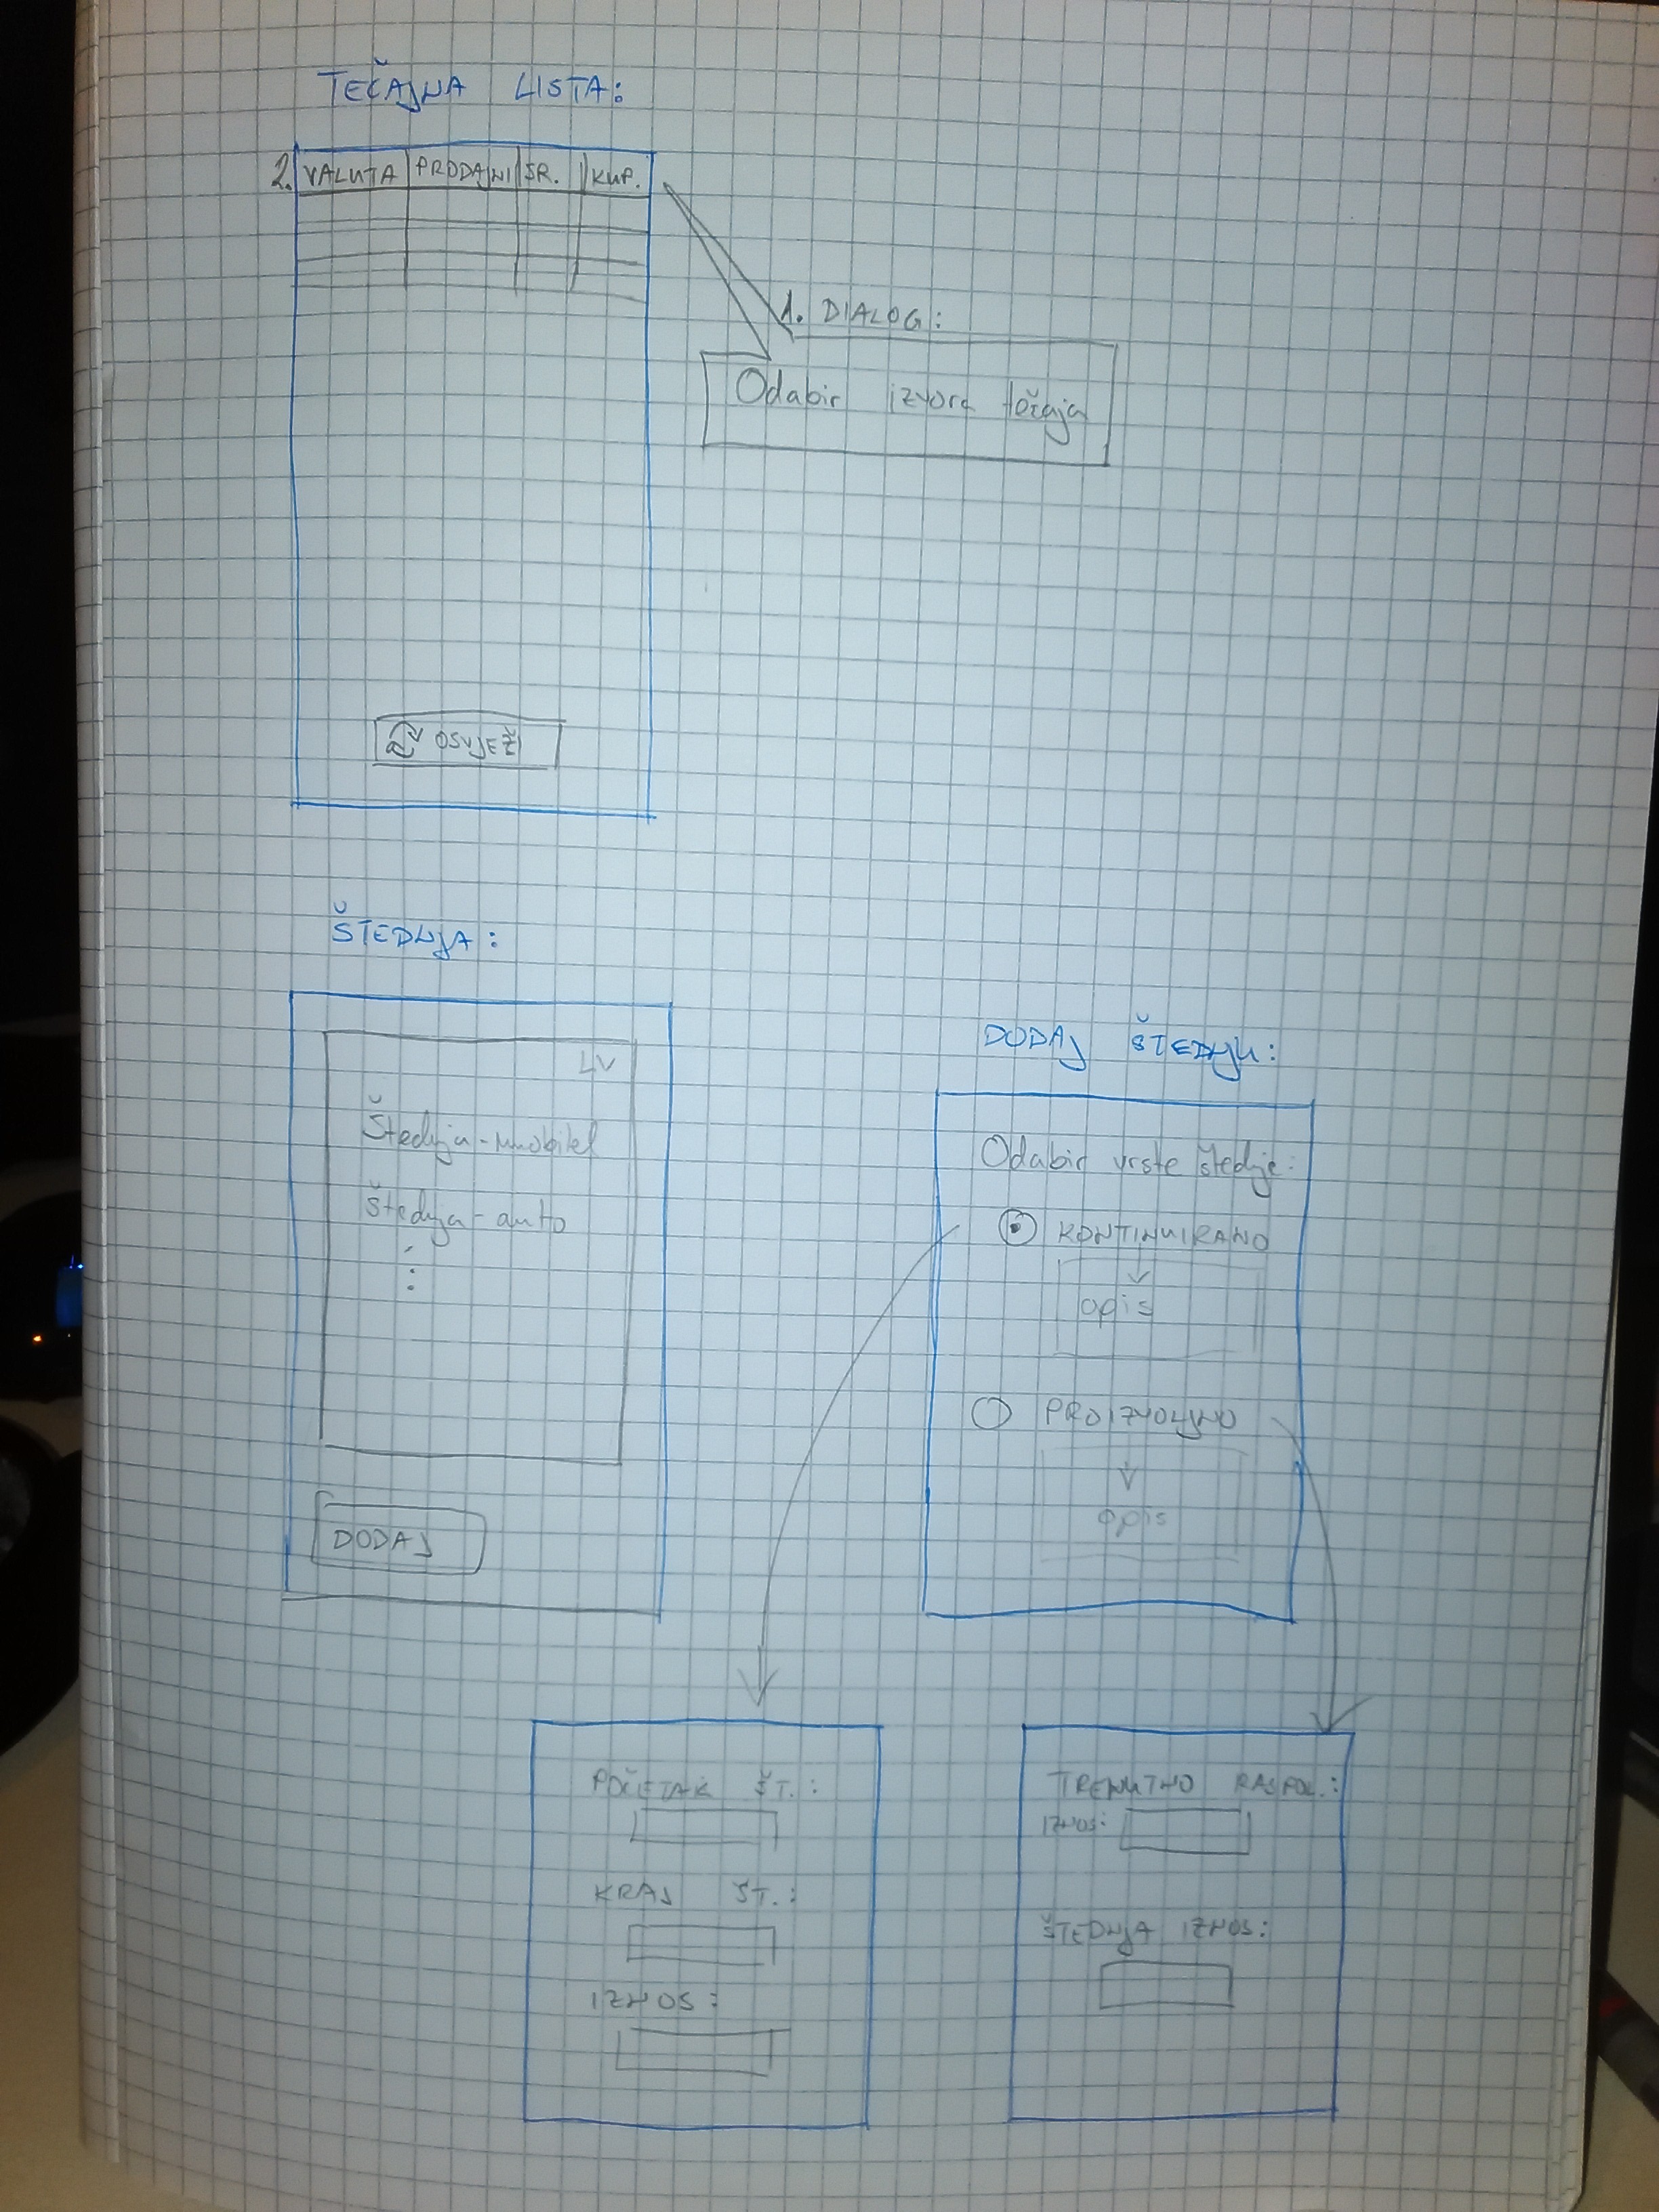 TEČAJNA LISTA:
2. VALUTA PRODAJNI SR. KUP.
1. DIALOG:
Odabir izvora tečaja
OSVJEŽI
ŠTEDNJA:
LV
Štednja-mobitel
Štednja-auto
DODAJ
DODAJ ŠTEDNJU:
Odabir vrste štednje:
KONTINUIRANO
opis
PROIZVOLJNO
opis
POČETAK ŠT.:
KRAJ ŠT.:
IZNOS:
TRENUTNO RASPOL.:
IZNOS:
ŠTEDNJA IZNOS: